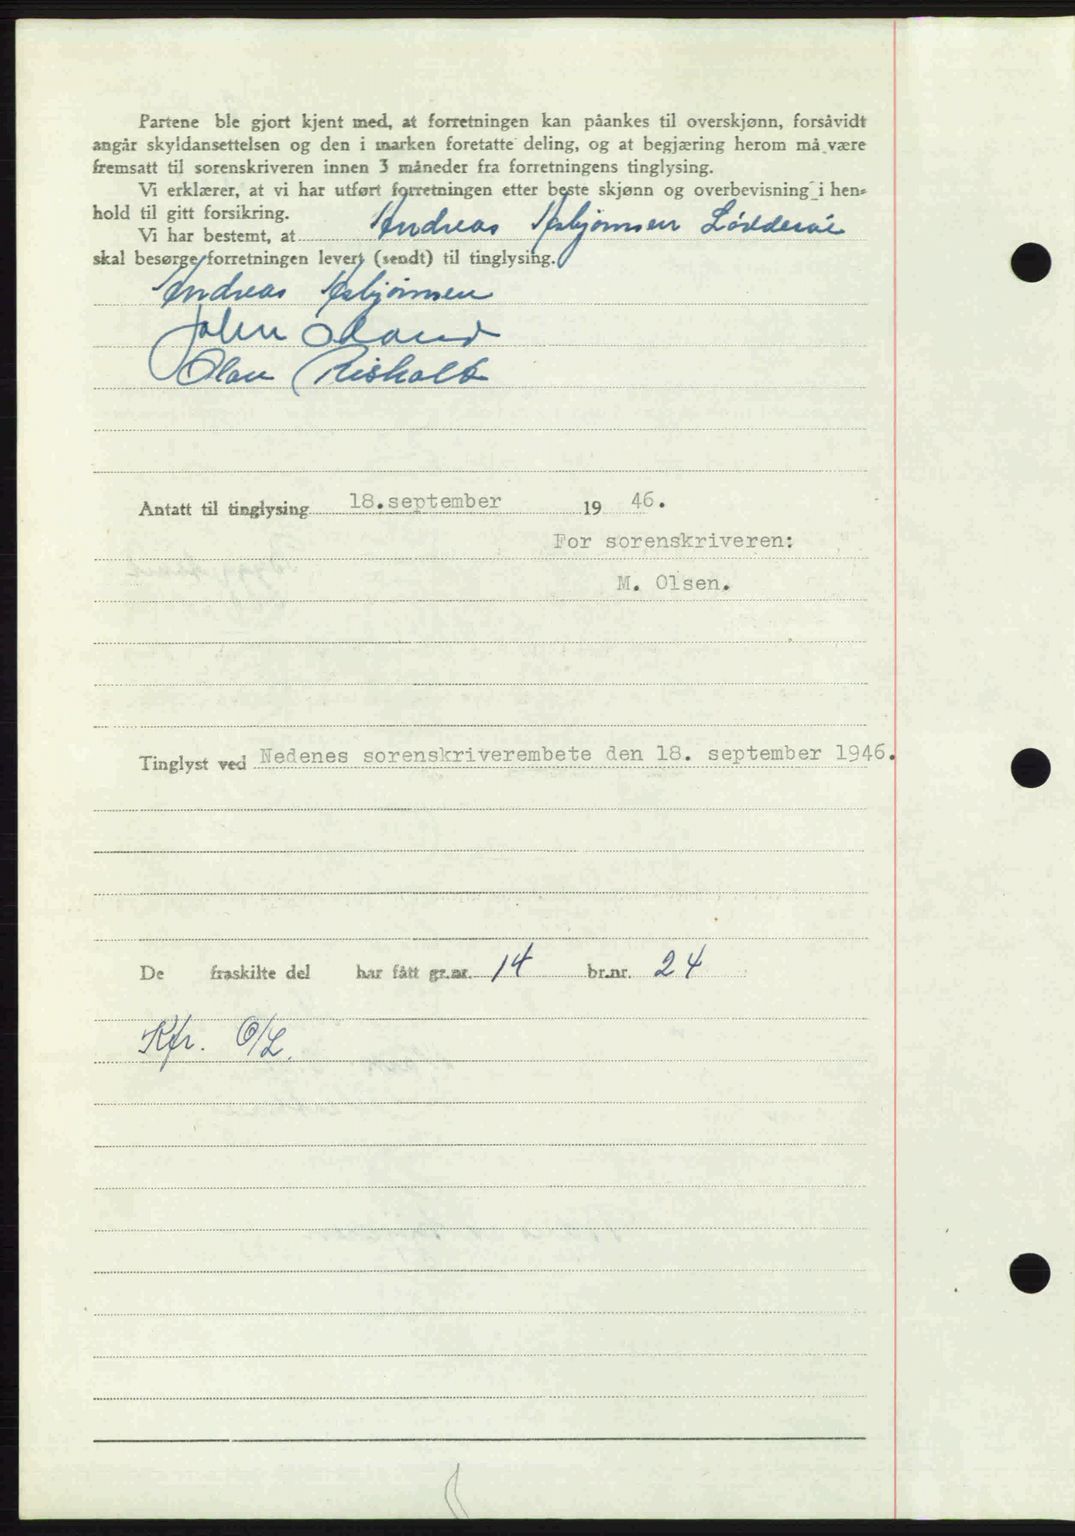 Partene ble gjort kjent med, at forretningen kan påankes til overskjønn, forsåvidt
angår skyldansettelsen og den i marken foretatte deling, og at begjæring herom må være
fremsatt til sorenskriveren innen 3 måneder fra forretningens tinglysing.
Vi erklærer, at vi har utført forretningen etter beste skjønn og overbevisning i hen-
hold til gitt forsikring.
Vi har bestemt, at Andreas Asbjörnsen
skal besørge forretningen levert (sendt) til tinglysing.
Andreas Asbjörnsen
John
Olav
Antatt til tinglysing 18.september 19 46.
For sorenskriveren:
M. Olsen.
Tinglyst ved Nedenes sorenskriverembete den 18. september 1946.
De fraskilte del har fått gr.nr. 14 br.nr. 24
Kfr. O/L.